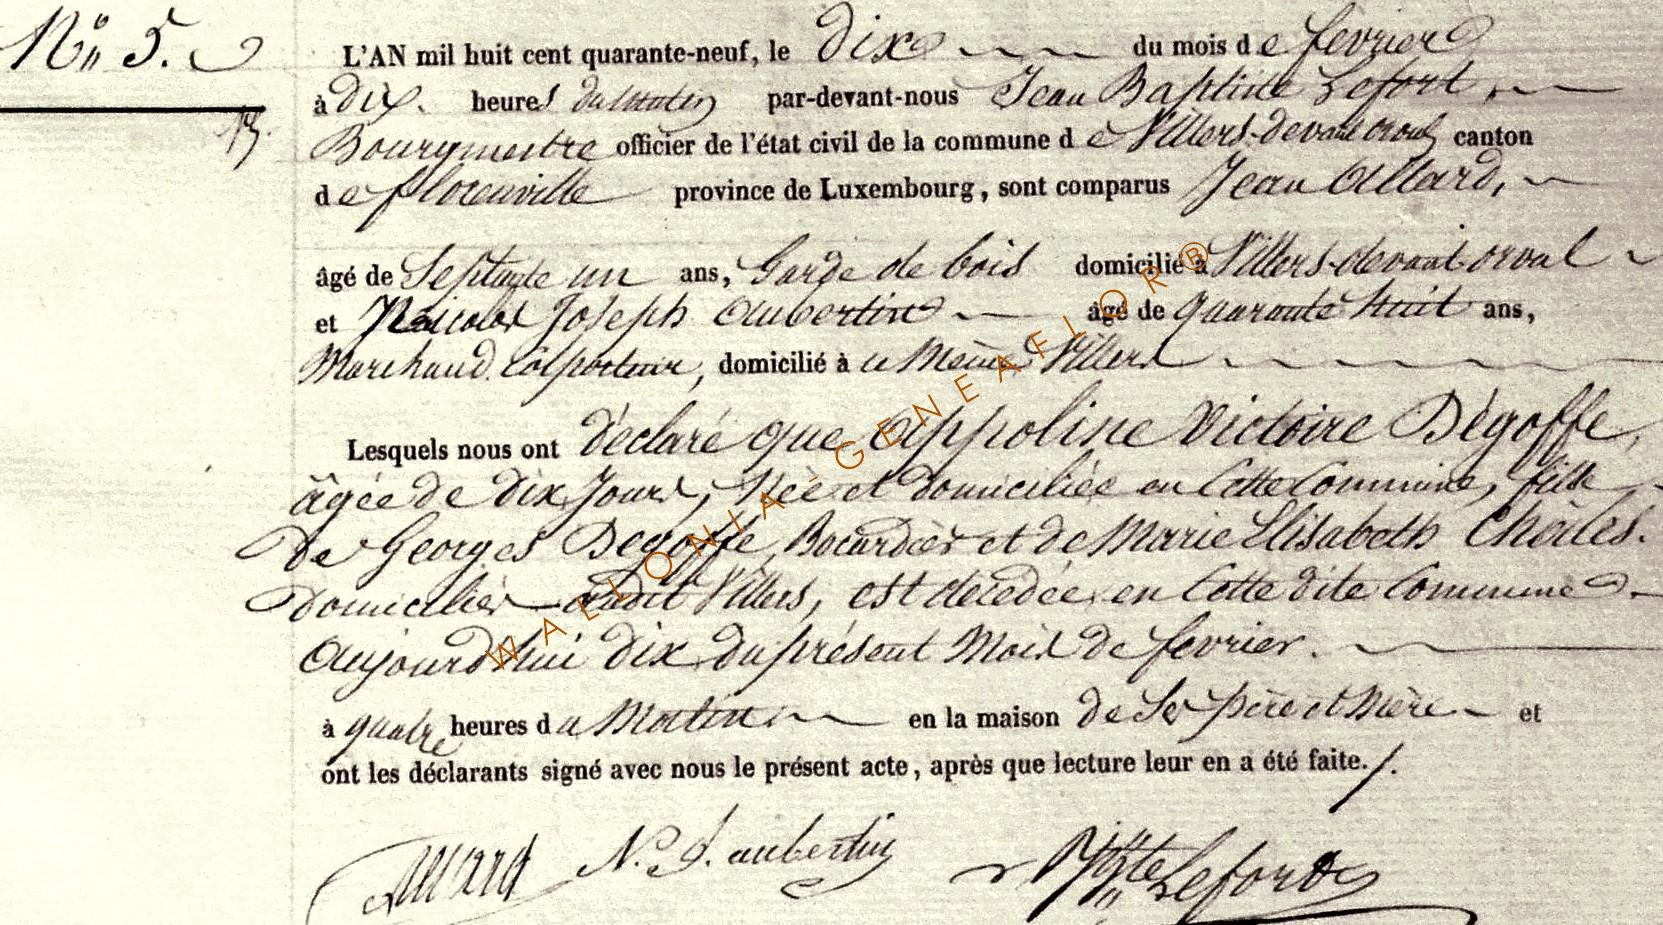 Nº 5.
L'AN mil huit cent quarante-neuf, le dix du mois de fevrier
à dix heures du matin par-devant-nous Jean Baptiste Lefort,
13.
Bourgmestre officier de l'état civil de la commune de Villers-devant orval canton
de florenville province de Luxembourg, sont comparus Jean Allard,
âgé de Septante un ans, Garde de bois domicilié à Villers-devant-orval
et Nicolas Joseph Aubertin âgé de quarante huit ans,
Marchand Colporteur, domicilié à ce Même Villers
Lesquels nous ont déclaré que Appoline Victoire Dègoffe,
âgée de dix Jours, Née et domiciliée en Cette Commune, fille
de Georges Degoffe, et de Marie Elisabeth
domiciliés audit Villers, est décédée en Cette dite Commune
Aujourd'hui dix du présent Mois de fevrier.
à quatre heures du Matin en la maison de Ses père et Mère et
ont les déclarants signé avec nous le présent acte, après que lecture leur en a été faite./.
Allard N. J. aubertin JBte Lefort
WALLONIA - GENEAFLOR®